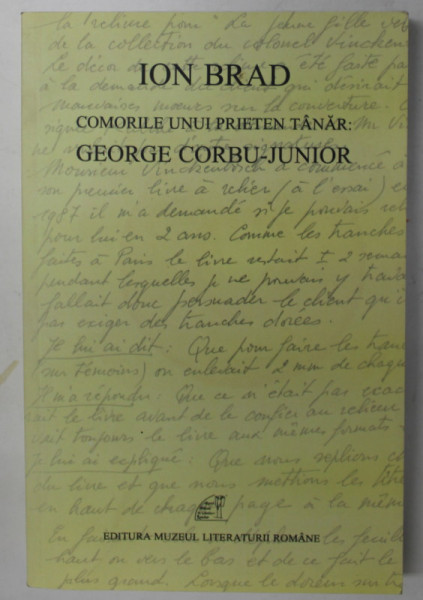 la reliure pour " La jeune fille
de la collection du colonel Vinckem
Le décor a été faite pas
à la demande qui désirait
mauvaises moeurs sur la couverture.
ION BRAD
COMORILE UNUI PRIETEN TÂNĂR:
GEORGE CORBU-JUNIOR
Monsieur a commencé à
son premier livre à relier (à l'essai) en
1987 il m'a demandé si je pouvais
pour lui en 2 ans. Comme les tranches
faites à Paris le livre restait
pendant lesquelles je ne pouvais y trava
fallait donc persuader le client qu'i
pas exiger des tranches dorées.
Je lui ai dit: Que pour faire les tran
(sur témoins) on enlevait 2 mm de chaque
Il m'a répondu: Que ce n'était pas exac
le livre avant de le confier au relieur
toujours le livre aux mêmes formats
Je lui ai expliqué: Que nous replions
du livre et que nous mettions les
en haut de chaque page à la même
EDITURA MUZEUL LITERATURII ROMÂNE
En les feuille
haut ou vers le bas et de ce fait le
plus grand. Lorsque le doreur